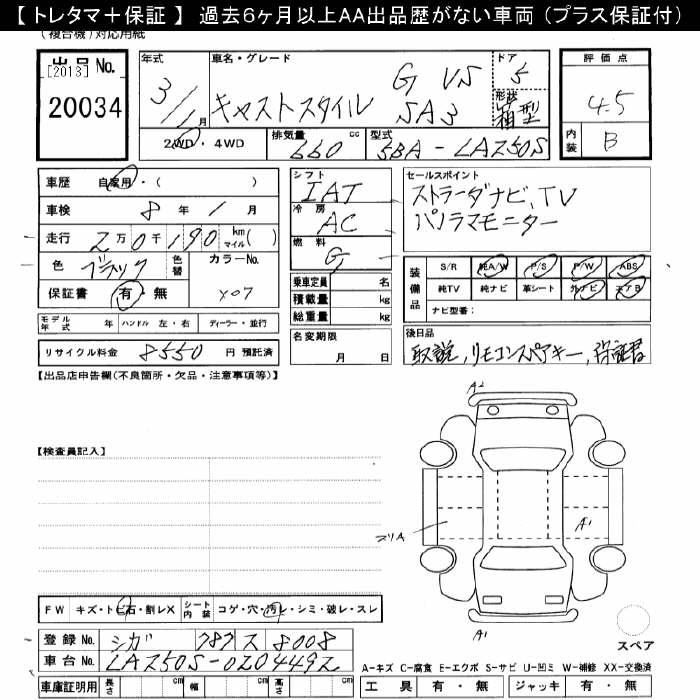 【 トレタマ＋保証 】 過去6ヶ月以上AA出品歴がない車両（プラス保証付）
（複合機）対応用紙
出品 No.
[2013]
20034
年式
3/1月
車名・グレード
G VS
キャストスタイル SA3
ドア
5
形状
箱型
評価点
4.5
内装
B
2WD・4WD
排気量 660 cc
型式 5BA-LA250S
車歴 自家用・( )
車検 8年 1月
走行 2万0千190 km マイル( )
色 ブラック 色替
カラーNo.
X07
保証書 有・無
シフト
IAT
冷房
AC
燃料
G
乗車定員 名
積載量 kg
総重量 kg
セールスポイント
ストラーダナビ、TV
パノラマモニター
装備品
S/R 純A/W P/S P/W ABS
純TV 純ナビ 革シート 外ナビ エアB
ナビ型番：
モデル年式 年 ハンドル 左・右 ディーラー・並行
リサイクル料金 8550 円 預託済
名変期限
月 日
後日品
取説，リモコンスペアキー，保証書
【出品店申告欄（不良箇所・欠品・注意事項等）】
A2
【検査員記入】
スリA
A1
FW キズ・トビ石・割レX シート内装 コゲ・穴・汚レ・シミ・破レ・スレ
A1
登録 No. シガ 787 ス 8008
車台 No. LA250S-0204492
スペア
A-キズ C-腐食 E-エクボ S-サビ U-凹ミ W-補修 XX-交換済
車庫証明用 長さ cm 幅 cm 高さ cm
工具 有・無 ジャッキ 有・無